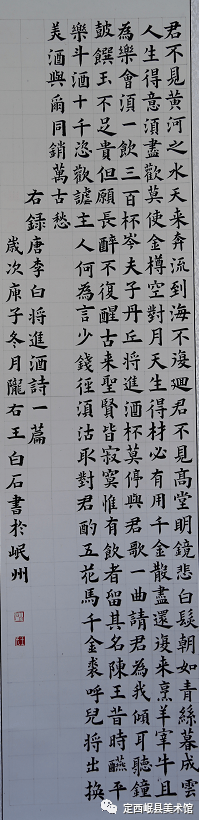 君不見黃河之水天来奔流到海不復迴君不見高堂明鏡悲白髮朝如青絲暮成雲
人生得意須盡歡莫使金樽空對月天生得材必有用千金散盡還復来烹羊宰牛且
為樂會須一飲三百杯岑夫子丹丘將進酒杯莫停與君歌一曲請君為我傾耳聽鐘
鼓饌玉不足貴但願長醉不復醒古来聖賢皆寂寞惟有飲者留其名陳王昔時讌平
樂斗酒十千恣歡謔主人何為言少錢徑須沽取對君酌五花馬千金裘呼兒將出換
美酒與爾同銷萬古愁
右録唐李白將進酒詩一篇
歲次庚子冬月隴右王白石書於岷州
定西岷县美术馆